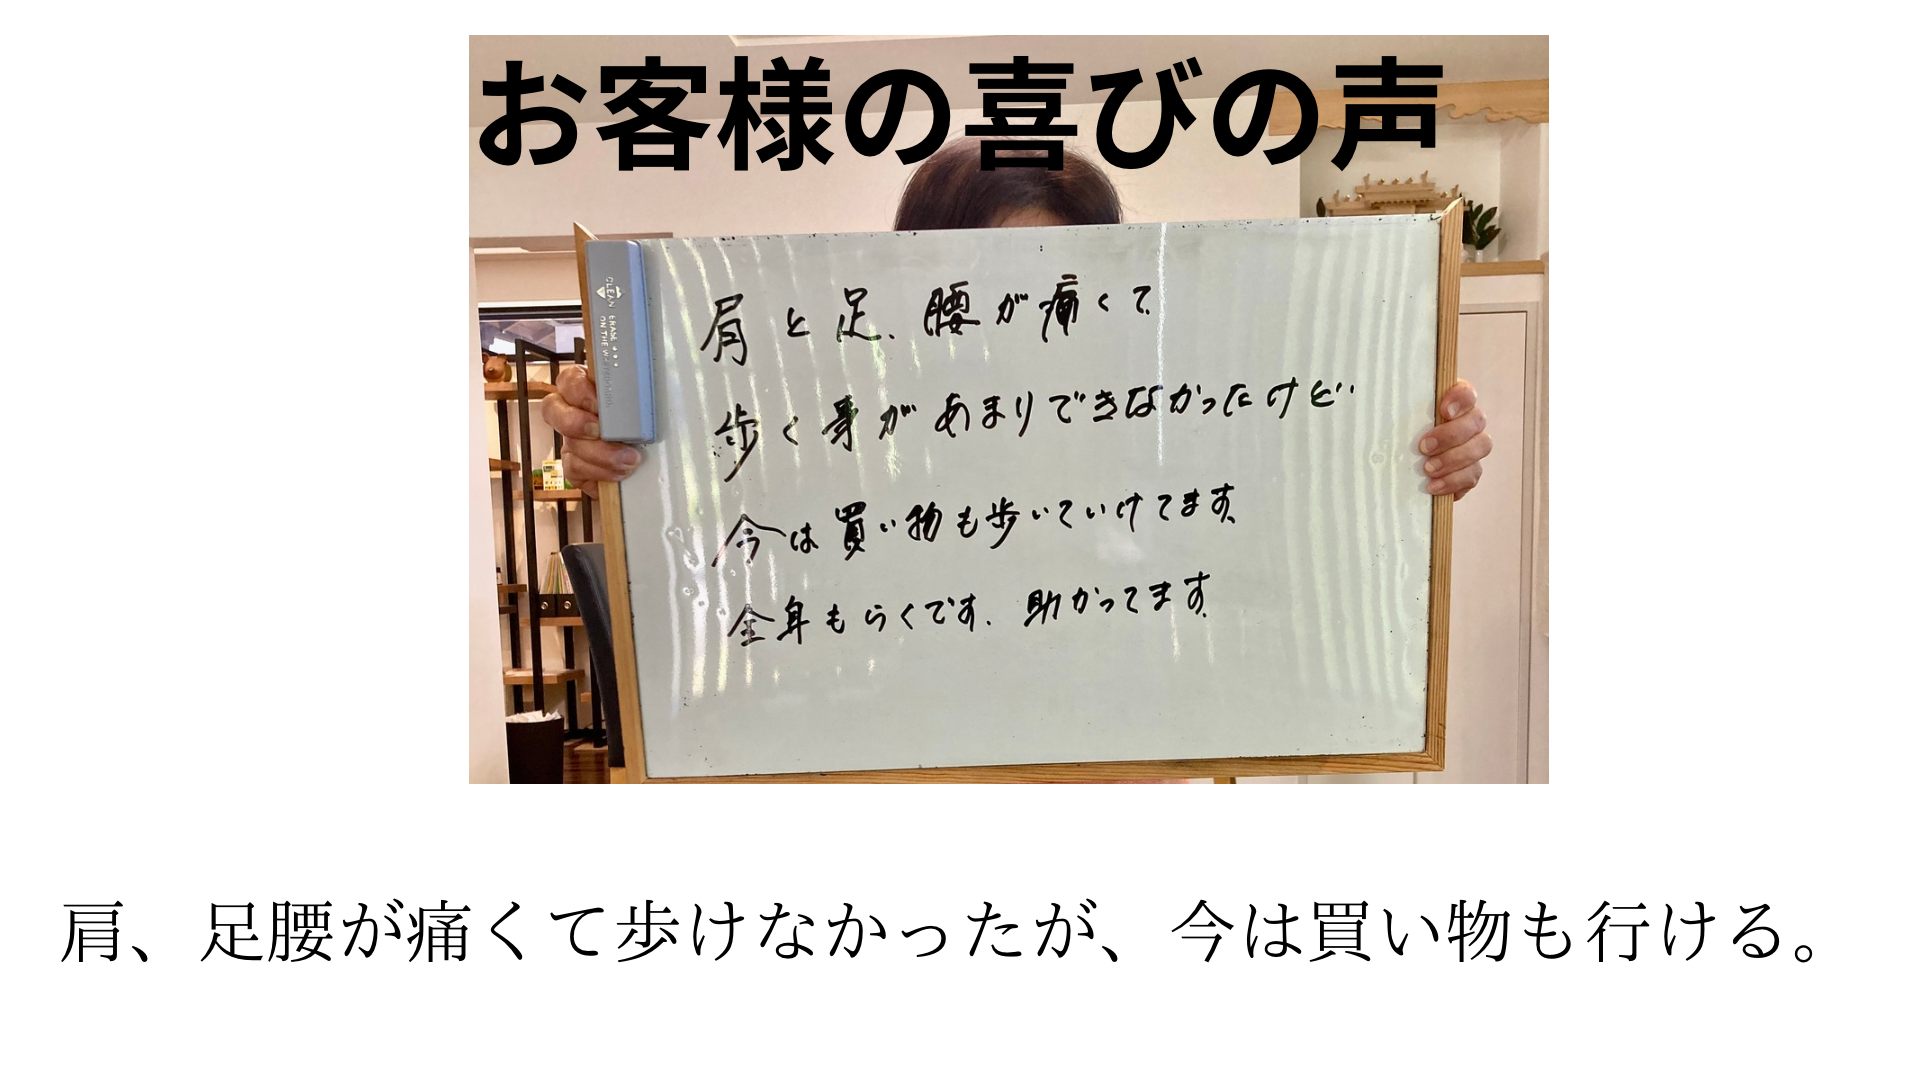 お客様の喜びの声
CLEAN ERASE
ON THE W
肩と足、腰が痛くて
歩く事があまりできなかったけど‥
今は買い物も歩いていけてます。
全身もらくです。助かってます。
肩、足腰が痛くて歩けなかったが、今は買い物も行ける。